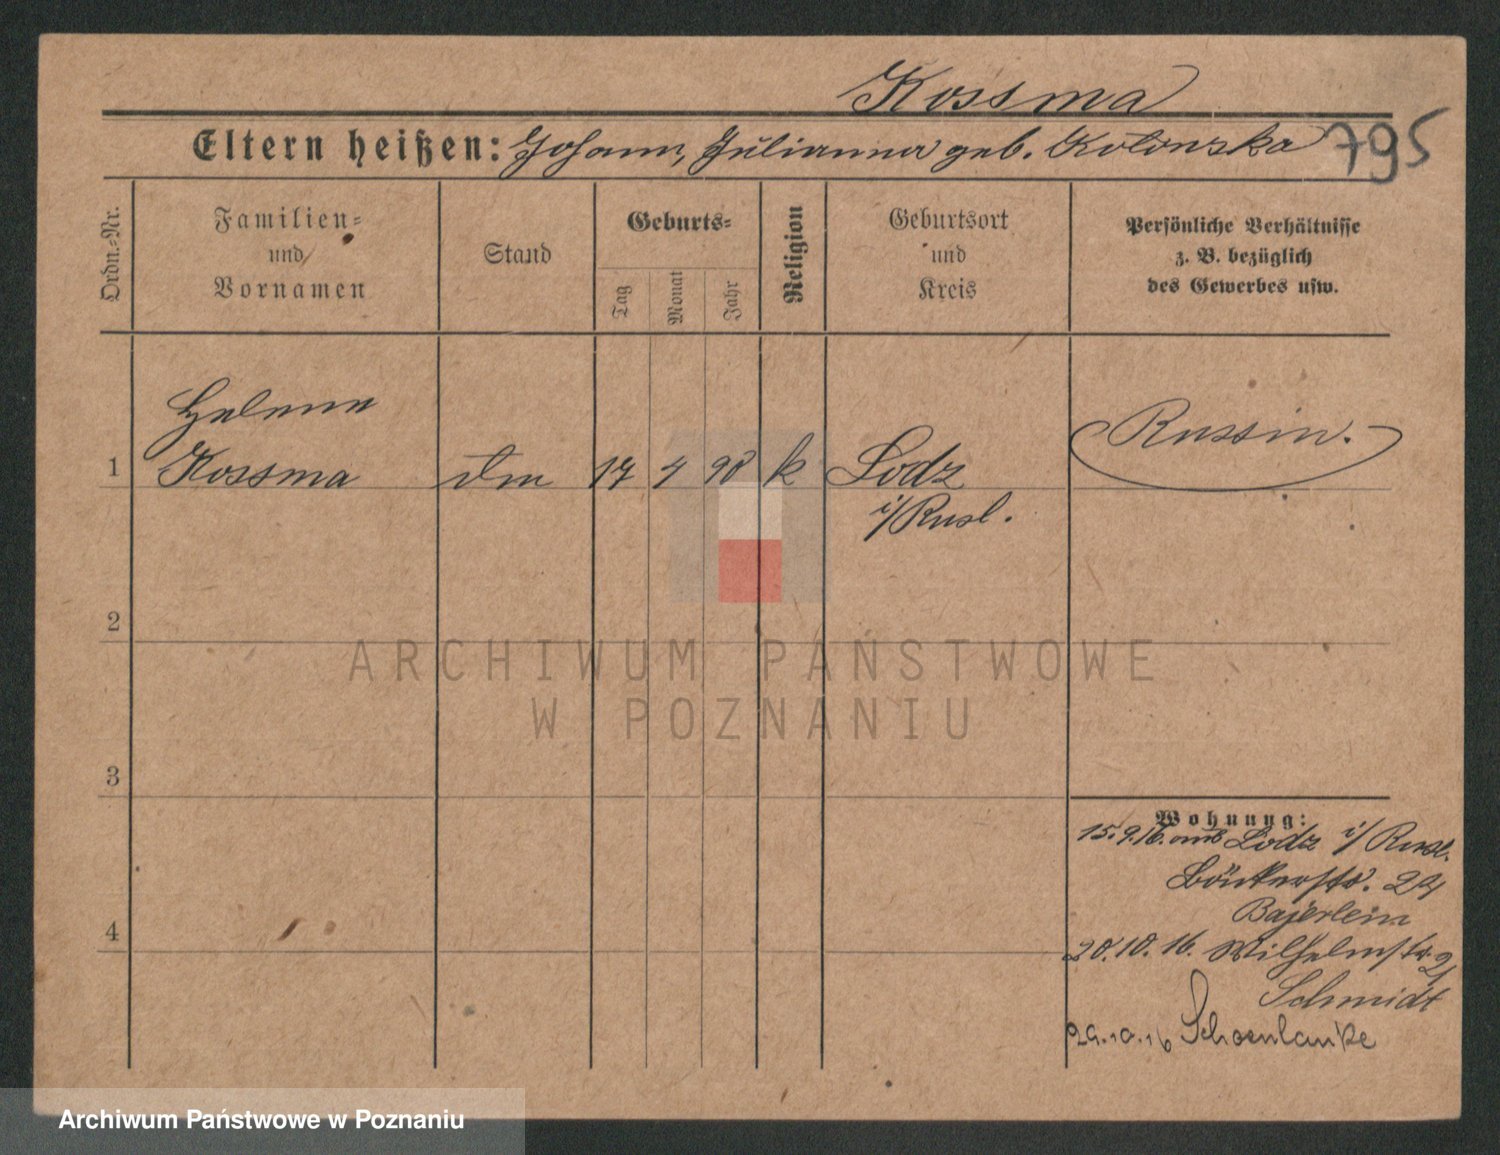 Kossma
Eltern heißen: Johann, Julianna geb. Kolonska 795
Ordn.=Nr.
Familien=
und
Vornamen
Stand
Geburts=
Tag
Monat
Jahr
Religion
Geburtsort
und
Kreis
Persönliche Verhältnisse
z. B. bezüglich
des Gewerbes usw.
Helene
1 Kossma 17 4 98 k Lodz
i/Rusl.
Russin.
2
3
4
Wohnung:
15.9.16. aus Lodz i/ Rusl.
24
Bajerlein
20.10.16. Wilhelmstr. 2
Schmidt
29.10.16 Schoenlanke
ARCHIWUM PAŃSTWOWE
W POZNANIU
Archiwum Państwowe w Poznaniu